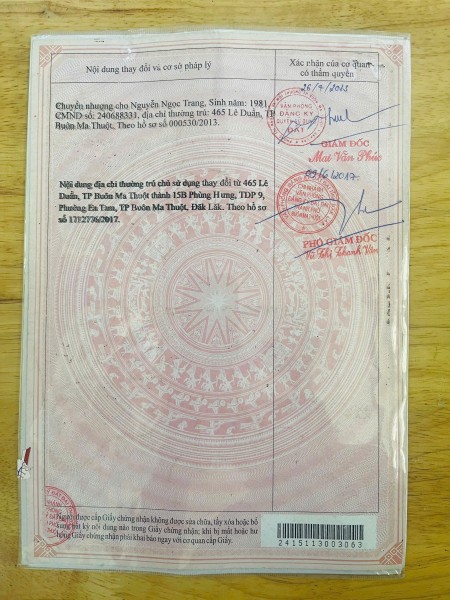 Nội dung thay đổi và cơ sở pháp lý
Xác nhận của cơ quan
có thẩm quyền
Chuyển nhượng cho Nguyễn Ngọc Trang, Sinh năm: 1981,
CMND số: 240688331, địa chỉ thường trú: 465 Lê Duẩn, TP
Buôn Ma Thuột, Theo hồ sơ số 000530/2013.
VĂN PHÒNG
ĐĂNG KÝ
QUYỀN SỬ DỤNG
ĐẤT
GIÁM ĐỐC
Mai Văn Phúc
Nội dung địa chỉ thường trú chủ sử dụng thay đổi từ 465 Lê
Duẩn, TP Buôn Ma Thuột thành 15B Phùng Hưng, TDP 9,
Phường Ea Tam, TP Buôn Ma Thuột, Đăk Lăk. Theo hồ sơ
CHI NHÁNH
VĂN PHÒNG
PHÓ GIÁM ĐỐC
Người được cấp Giấy chứng nhận không được sửa chữa, tẩy xóa hoặc bổ
sung bất kỳ nội dung nào trong Giấy chứng nhận; khi bị mất hoặc hư
hỏng Giấy chứng nhận phải khai báo ngay với cơ quan cấp Giấy.
2415113003063